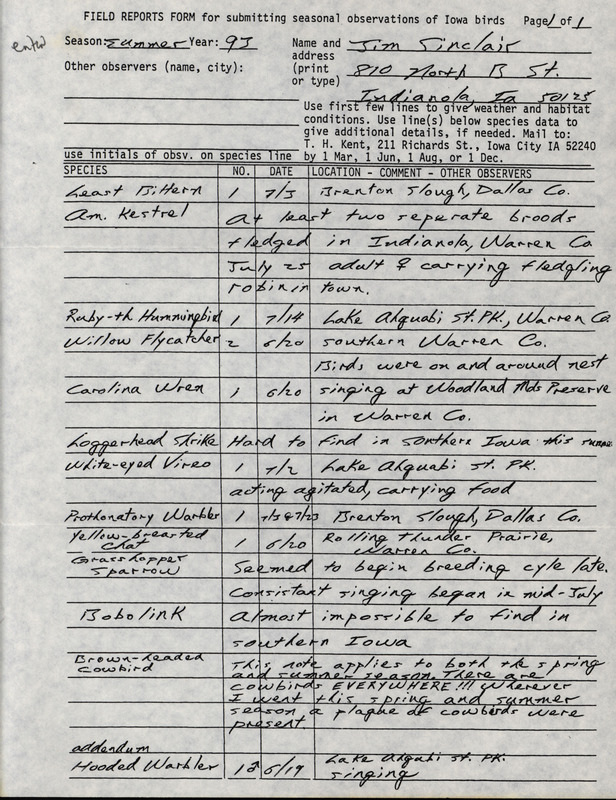 FIELD REPORTS FORM for submitting seasonal observations of Iowa birds Page 1 of 1
entrd
Season: Summer Year: 93 Name and Jim Sinclair
address
Other observers (name, city): (print 810 North B St.
or type)
Indianola, Ia 50125
Use first few lines to give weather and habitat
conditions. Use line(s) below species data to
give additional details, if needed. Mail to:
T. H. Kent, 211 Richards St., Iowa City IA 52240
use initials of obsv. on species line by 1 Mar, 1 Jun, 1 Aug, or 1 Dec.
SPECIES NO. DATE LOCATION - COMMENT - OTHER OBSERVERS
Least Bittern 1 7/3 Brenton Slough, Dallas Co.
Am. Kestrel At least two seperate broods
fledged in Indianola, Warren Co
July 25 adult ♀ carrying fledgling
robin in town.
Ruby-th Hummingbird 1 7/14 Lake Ahquabi St. PK., Warren Co
Willow Flycatcher 2 6/20 southern Warren Co.
Birds were on and around nest
Carolina Wren 1 6/20 singing at Woodland Mds Preserve
in Warren Co.
Loggerhead Shrike Hard to find in southern Iowa this summer
White-eyed Vireo 1 7/2 Lake Ahquabi St. PK.
acting agitated, carrying food
Prothonatory Warbler 1 7/3 & 7/23 Brenton Slough, Dallas Co.
Yellow-breasted
Chat 1 6/20 Rolling Thunder Prairie,
Warren Co.
Grasshopper
Sparrow Seemed to begin breeding cyle late.
Consistant singing began in mid-July
Bobolink Almost impossible to find in
southern Iowa
Brown-headed
Cowbird This note applies to both the spring
and summer season. There are
cowbirds EVERYWHERE!!! Wherever
I went this spring and summer
season a plaque of cowbirds were
present.
addendum
Hooded Warbler 1♂ 6/19 Lake Ahquabi St. PK.
singing